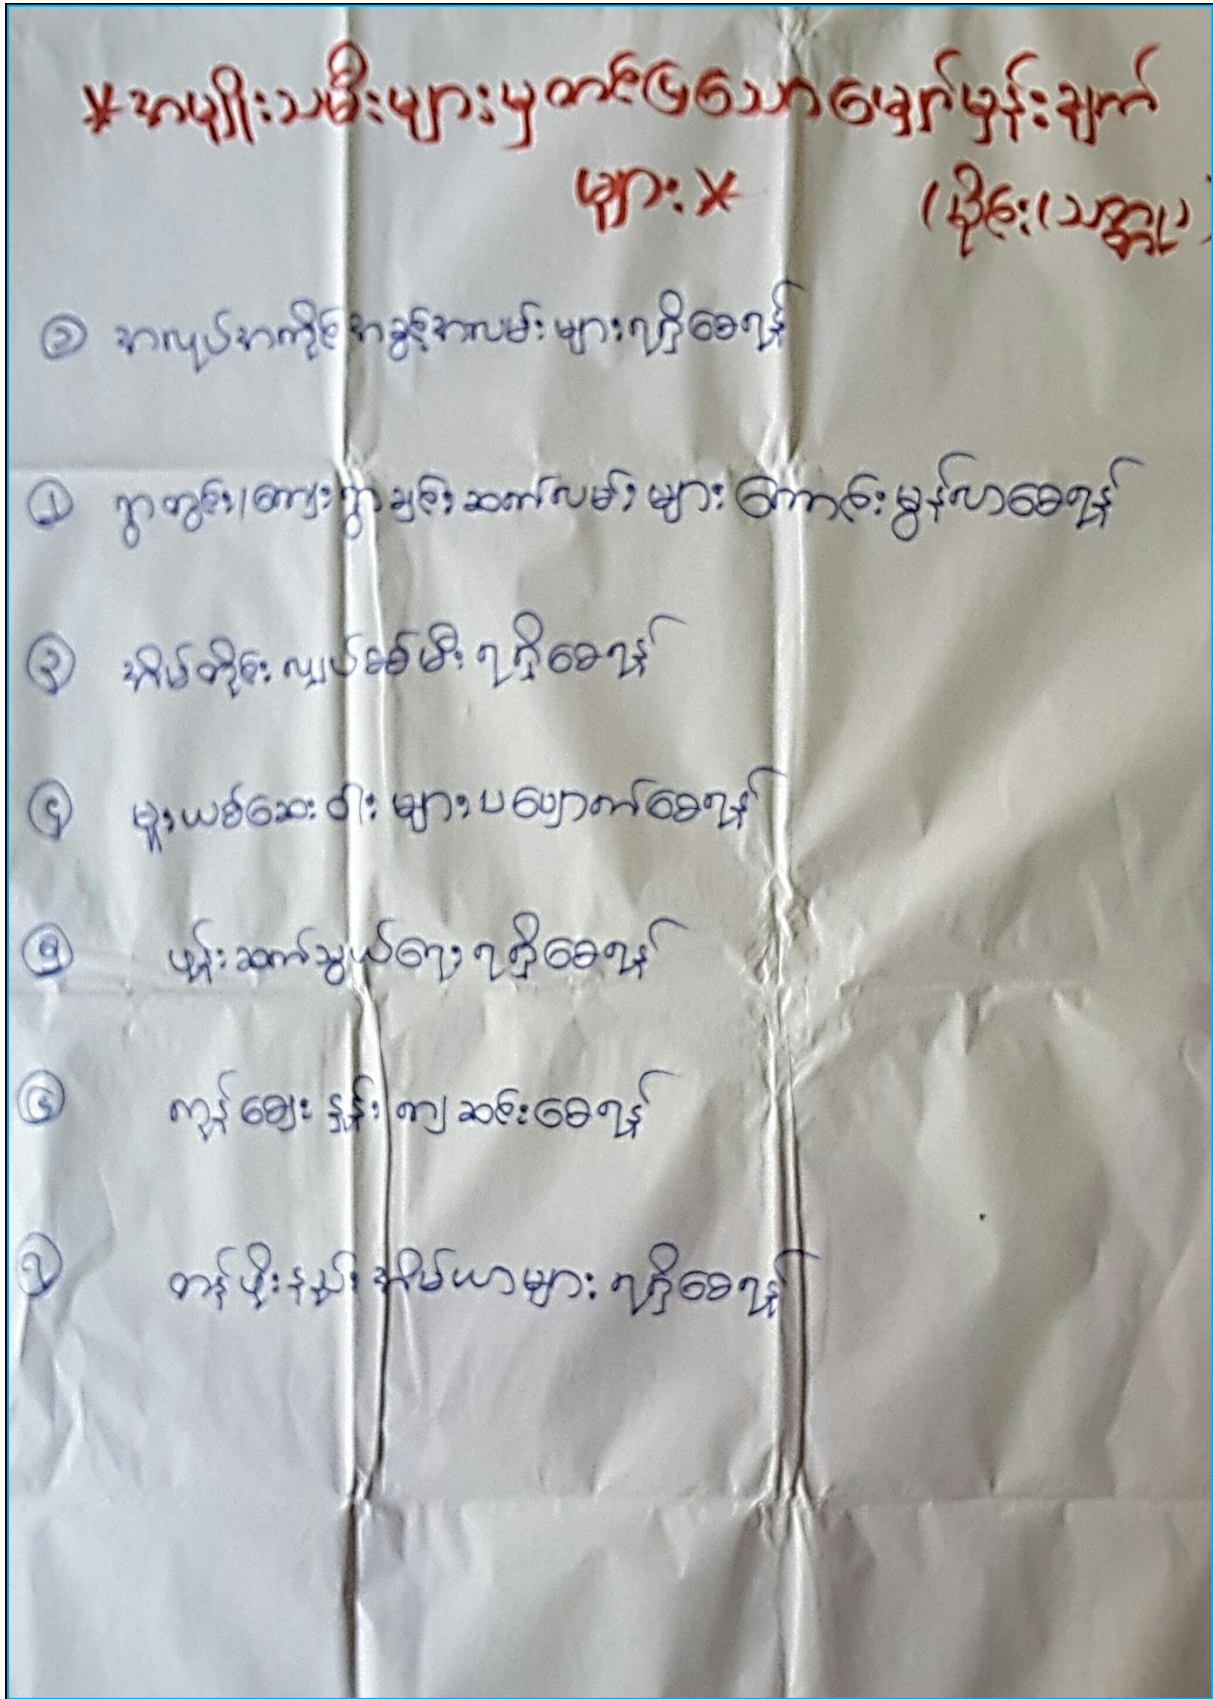 *အမျိုးသမီးများမှတင်ပြသောမျှော်မှန်းချက်
များ*
၁ အလုပ်အကိုင်အခွင့်အလမ်းများရရှိစေရန်
၂ ရွာတွင်း/ကျေးရွာချင်းဆက်လမ်းများ ကောင်းမွန်လာစေရန်
၃ အိမ်တိုင်းလျှပ်စစ်မီးရရှိစေရန်
၄ မူးယစ်ဆေးဝါးများပပျောက်စေရန်
၅ ဖုန်းဆက်သွယ်ရေးရရှိစေရန်
၆ ကုန်ဈေးနှုန်းကျဆင်းစေရန်
၇ တန်ဖိုးနည်းအိမ်ယာများရရှိစေရန်